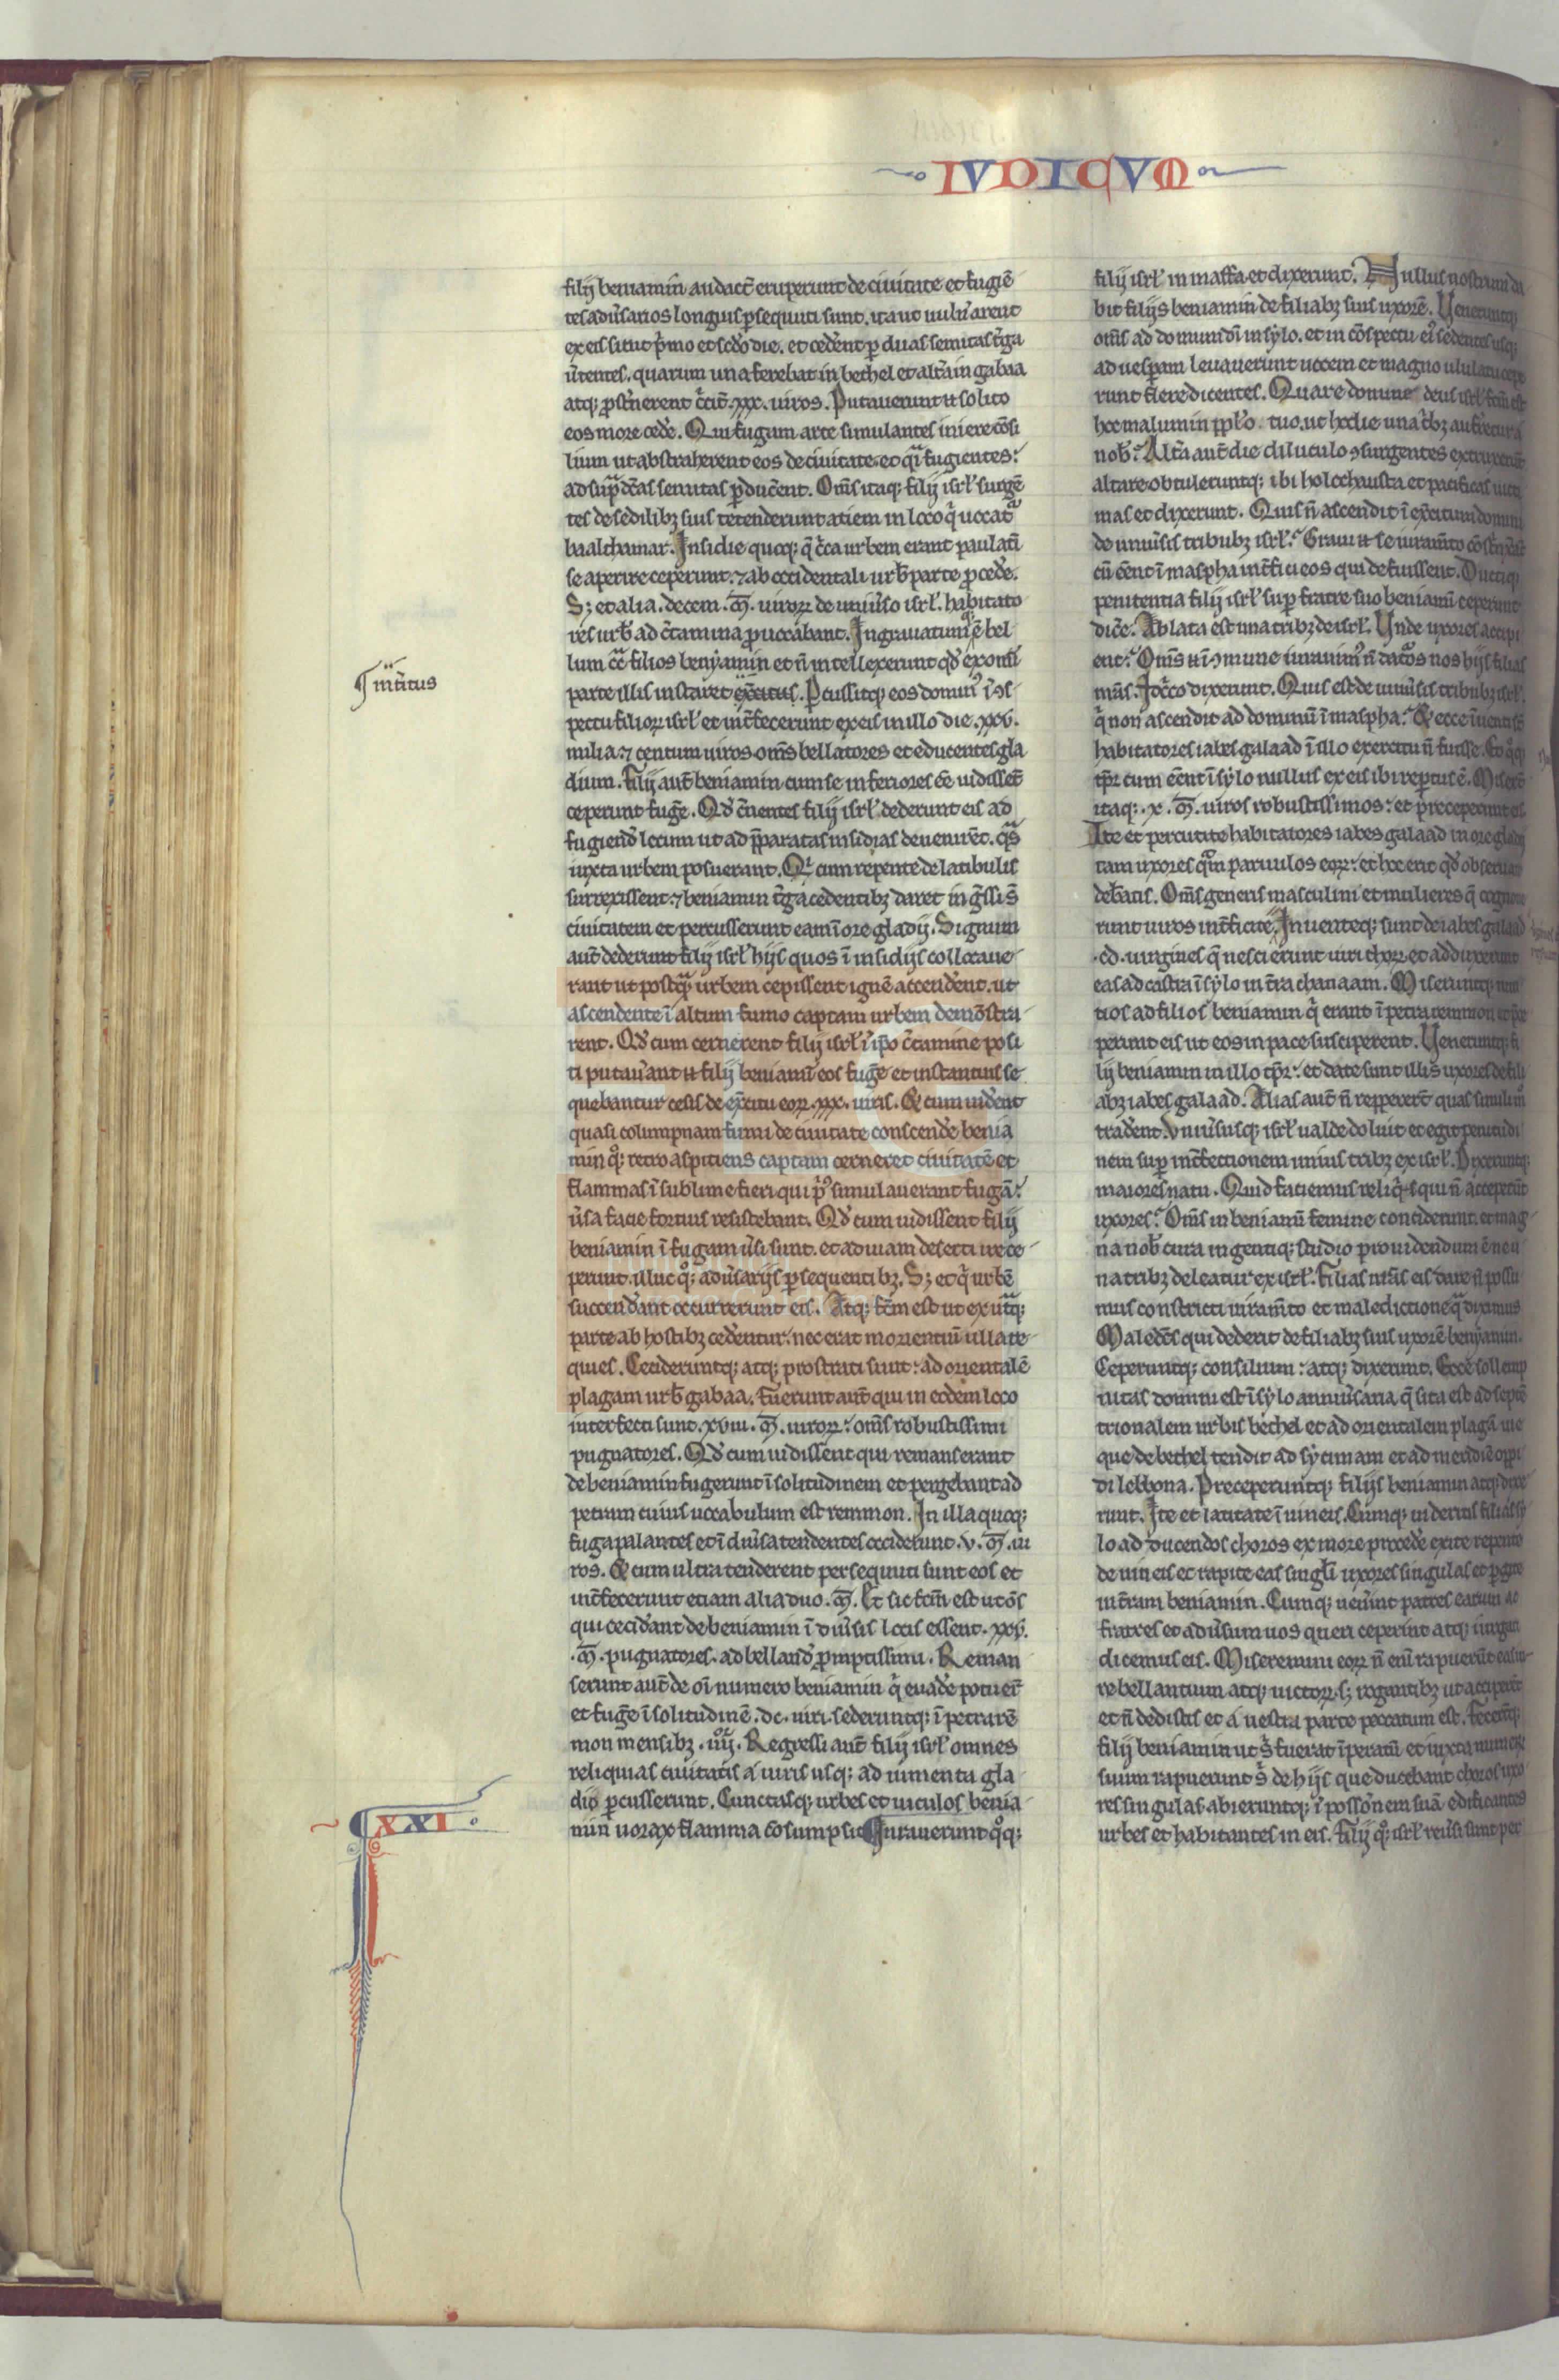 IVDICVM
filij beniamin audact̄ eruperunt de ciuitate et fugiē
tes aduˀsarios longius ꝑsequuti sunt. ita ut uulnˀarent
ex eis sicut pˀmo et scd̄o die. et cedˀent ꝑ duas semitas tˀga
uˀtentes. quarum una ferebat in bethel et altˀa in gabaa
atq; ꝓstˀnerent cˀcit̄. xxx. uiros. Putauerunt n̄ solito
eos more cedˀe. Qui fugam arte simulantes iniere cōsi
lium ut abstraherent eos de ciuitate. et qˀi fugientes:
ad sup̄ dc̄as semitas ꝑducˀent. Om̄s itaq; filij isrł surgē
tes de sedilibꝫ suis tetenderunt atiem in loco qˀ uocatˀ
baalthamar. Insidie quoq; q̄ cˀca urbem erant paulatī
se aperire ceperunt. ⁊ ab occidentali urb̄ parte ꝓcedˀe.
S; et alia. decem. m̄. uiroꝝ de uniuˀso isrł. habitato
res urb̄ ad cˀtamina ꝓuocabant. Ingrauatumq; ē bel
lum cˀ filios benyamin et n̄ intellexerunt qd̄ ex om̄i
parte illis instaret exˀcitus. Ꝑcussitq; eos dominˀ ī ꝯs
¶ intˀitus
pectu filioꝝ isrł et intˀfecerunt ex eis in illo die. xxv.
milia. ⁊ centum uiros. om̄s bellatores et educentes gla
dium. Filij aut̄ beniamin cum se inferiores eē uidissēt
ceperunt fugˀe. Qd̄ cˀnentes filij isrł dederunt eis ad
fugiend̄ locum ut ad p̄paratas insidias deuenirēt. qˀs
iuxta urbem posuerant. Qi cum repente de latibulis
surrexissent. ⁊ beniamin tˀga cedentibꝫ daret ingˀssi sˀ
ciuitatem et percusserunt eam ī ore gladij. Signum
aut̄ dederunt filij isrł hijs quos ī insidijs collocaue
rant ut postqˀ urbem cepissent ignē accendˀent. ut
ascendente ī altum fumo captam urbem demōstra
rent. Qd̄ cum cernerent filij isrł ī ip̄o cˀtamine posi
ti putauˀant n̄ filij beniamī eos fugˀe et instantius se
quebantur cesis de exˀcitu eoꝝ. xxx. uiris. Et cum uidˀent
quasi columpnam fumi de ciuitate conscendˀe benia
min qˀ; retro aspitiens captam cerneret ciuitatē et
flammas ī sublime fieri qui pˀus simulauerant fugā:
uˀsa facie fortius resistebant. Qd̄ cum uidissent filij
beniamin ī fugam uˀsi sunt. et ad uiam deserti ire ce
perunt. illuc qˀ; aduˀsarijs ꝑsequentibꝫ. S; et qˀ urbē
succendˀant occurrerunt eis. Atq; fc̄m est ut ex utˀq;
parte ab hostibꝫ cedˀentur. nec erat morientiū ulla re
quies. Ceciderunt; atq; prostrati sunt: ad orientalē
plagam urb̄ gabaa. Fuerunt aut̄ qui in eodem loco
interfecti sunt. xviii. m̄. uiroꝝ: om̄s robustissimi
pugnatores. Qd̄ cum uidissent qui remanserant
de beniamin fugerunt ī solitudinem et pergebant ad
petram cuius uocabulum est remmon. In illa quoq;
fuga palantes et ī diuˀsa tendentes ceciderunt. v. m̄. ui
ros. Et cum ultra tenderent persequuti sunt eos et
intˀfecerunt etiam alia duo. m̄. Et sic fc̄m est ut om̄s
qui cecidˀant de beniamin ī diuˀsis locis essent. xxv.
. m̄. pugnatores. ad belland̄ ꝓmptissimi. Reman
serunt aut̄ de om̄i numero beniamin qˀ euadˀe potuer̄
et fugˀe ī solitudinē. dc. uiri. sederuntq; ī petra rē
mon mensibꝫ. iiij. Regressi aut̄ filij isrł omnes
reliquias ciuitatis a uiris usq; ad iumenta gla
dio ꝑcusserunt. Cunctasq; urbes et uiculos benia
min uorax flamma cōsumpsit ¶ Iurauerunt qˀq;
XXI
filij isrł in maffa. et dixerunt. Nullus nostrum da
bit filijs beniamin de filiabꝫ suis uxorē. Uenerunt;
om̄s ad domum dī in sylo. et in cōspectu eiˀ sedentes usq;
ad uesꝑam leuauerunt uocem et magno ululatu cepe
runt flere dicentes. Quare domine deus isrł fc̄m est
hoc malum in ppło tuo. ut hodie una tˀbꝫ aufˀretur a
nob̄: Altˀa aut̄ die diluculo ꝯsurgentes extruxerūt
altare. obtuleruntq; ibi holochausta et pacificas uicti
mas et dixerunt. Quis n̄ ascendit ī exˀcitum domini
de uniuˀsis tribubꝫ isrł: Graui n̄ se iuramˀto cōstˀnxˀāt
cū eēnt ī maspha intˀfici eos qui defuissent. Ductiq;
penitentia filij isrł suꝑ fratre suo beniamī ceperunt
dicˀe. Ablata est una tribꝫ de isrł. Unde uxores accipi
ent: Om̄s n̄ ī ꝯmune iurauimˀ n̄ datˀos nos hijs filias
nr̄as. Idcˀco dixerunt. Quis est de uniuˀsis tribubꝫ isrł.
qˀ non ascendit ad dominū ī maspha: Et ecce īuenti sˀ
habitatores iabes galaad ī illo exercitu n̄ fuisse. Eo qˀq;
tꝑr cum eēnt ī sylo nullus ex eis ibi reꝑtus ē. Miserˀt
itaq;. x. m̄. uiros robustissimos: et preceperunt eis
Ite et percutite habitatores iabes galaad in ore gladij
tam uxores qˀm paruulos eoꝝ: et hoc erit qd̄ obseruare
debˀatis. Om̄s generis masculini et mulieres q̄ cognoue
runt uiros intˀficite. Inuenteq; sunt de iabes galaad
. cd. uirgines q̄ nescierunt uiri thorū et adduxerunt
eas ad castra ī sylo in tˀra chanaam. Miseruntq; nun
tios ad filios beniamin qˀ erant ī petra remmon et pˀce
perunt eis ut eos in pace susciperent. Ueneruntq; fi
lij beniamin in illo tꝑr: et date sunt illis uxores de fili
abꝫ iabes galaad. Alias aut̄ n̄ reppererˀt quas simili mˀ
tradˀent. Uniuˀsusq; isrł ualde doluit et egit penitudi
nem suꝑ intˀfectionem unius tribꝫ ex isrł. Dixeruntq;
maiores natu. Quid faciemus reliqˀs qui n̄ acceperūt
uxores: Om̄s in beniamī femine conciderunt. et mag
na nob̄ cura ingentiq; studio prouidendum ē ne u
na tribꝫ deleatur ex isrł. Filias nr̄as eis dare n̄ possu
mus constricti iuramˀto et maledictione qˀ diximus
Maledc̄s qui dederit de filiabꝫ suis uxorē benyamin.
Ceperuntq; consilium: atq; dixerunt. Ecce sollemp
nitas domini est ī sylo anniuˀsaria. q̄ sita est ad septē
trionalem urbis bethel et ad orientalem plagā uie
que de bethel tendit ad sycimam et ad meridiē oppi
di lebbona. Preceperuntq; filijs beniamin atq; dixe
runt. Ite et latitate ī uineis. Cumq; uideritis filias sy
lo ad ducendos choros ex more procedˀe exite repente
de uineis et rapite eas singłi uxores singulas et ꝑgite
in tˀram beniamin. Cumq; uenˀint patres earum ac
fratres et aduˀsum uos queri ceperint atq; iurgari
dicemus eis. Miseremini eoꝝ n̄ em̄ rapuerūt eas iu
re bellantium atq; uictoꝝ. s; rogantibꝫ ut acciperēt
et n̄ dedistis et a uestra parte peccatum est. Fecerˀtq;
filij beniamin ut sˀ fuerat īperatū et iuxta numerū
suum rapuerunt sˀ de hijs que ducebant choros uxo
res singulas. abieruntq; ī possˀonem suā. edificantes
urbes et habitantes in eis. Filij qˀ; isrł reuˀsi sunt per